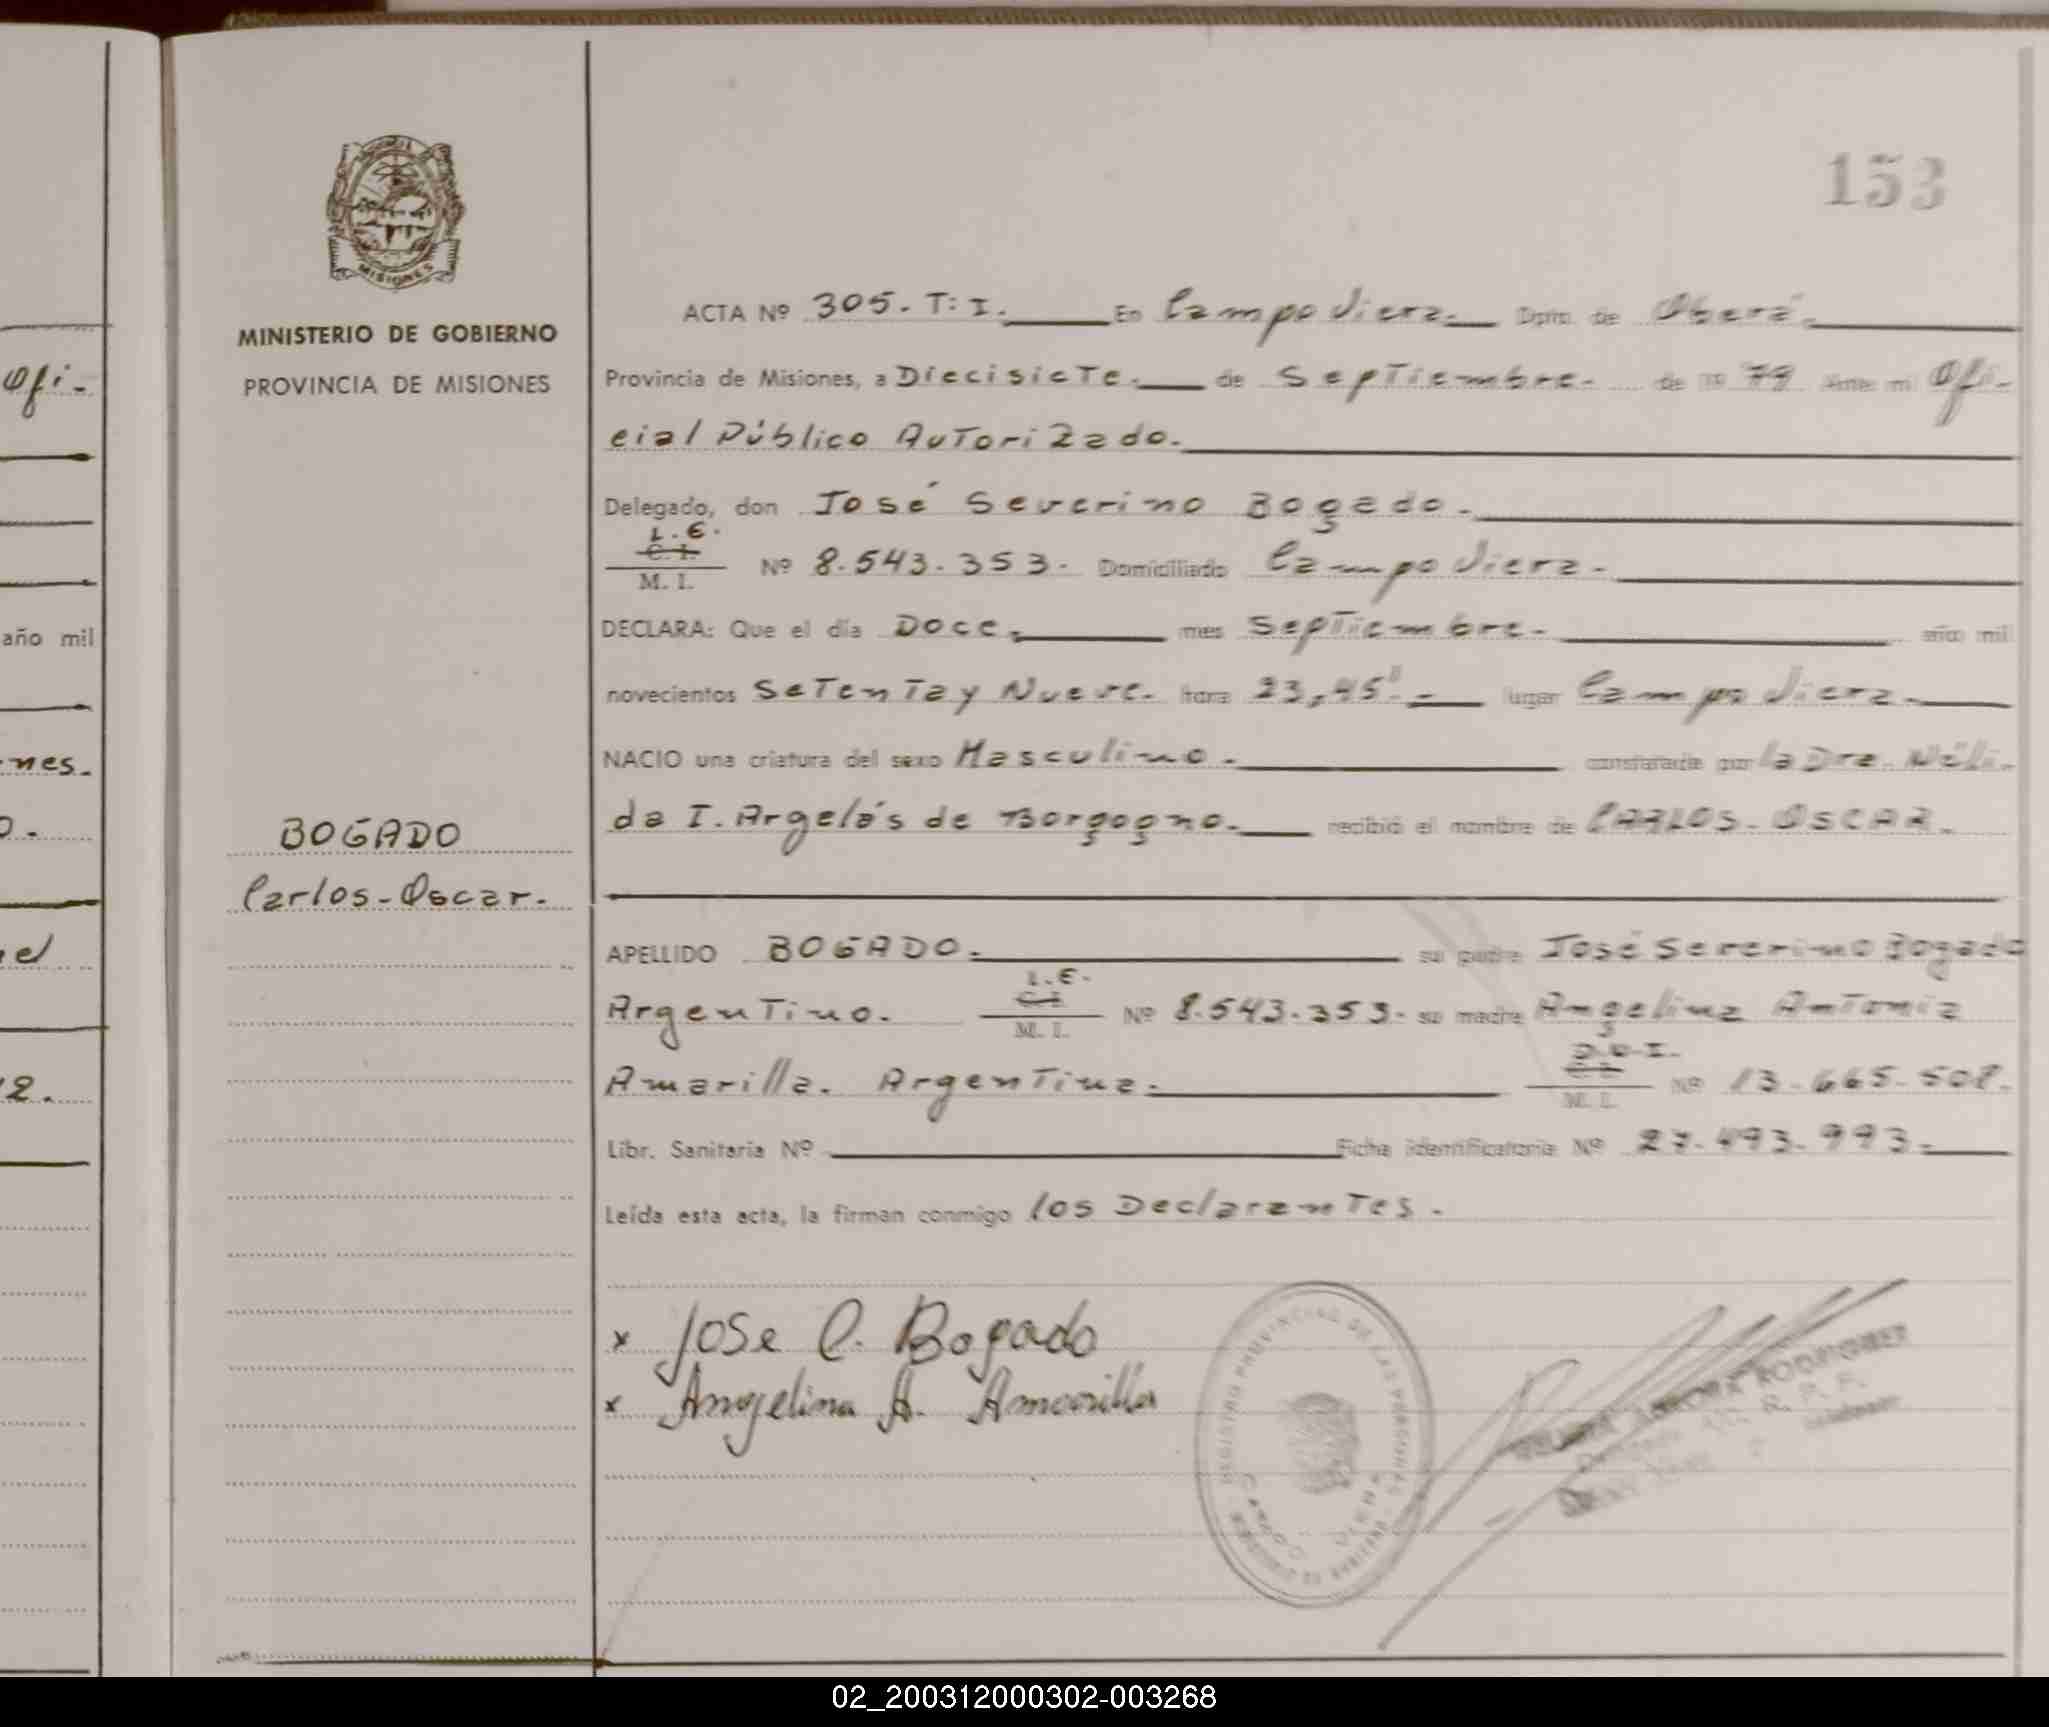 Ofi-
año mil
nes.
o.
el
2.
MISIONES
MINISTERIO DE GOBIERNO
PROVINCIA DE MISIONES
BOGADO
Carlos-Oscar.
153
ACTA Nº 305. T: I. En Campo Viera. Dpto. de Oberá.
Provincia de Misiones, a Diecisiete. de Septiembre. de 19 79 Ante mi Ofi-
cial Público Autorizado.
Delegado, don José Severino Bogado.
L.E.
C. I.
M. I.
Nº 8.543.353. Domiciliado Campo Viera.
DECLARA: Que el día Doce. mes Septiembre. año mil
novecientos Setenta y Nueve. hora 23,45'. lugar Campo Viera.
NACIO una criatura del sexo Masculino. constatada por la Dra. Néli-
da I. Argelás de Borgogno. recibió el nombre de CARLOS-OSCAR.
APELLIDO BOGADO. su padre José Severino Bogado
Argentino.
L.E.
C. I.
M. I.
Nº 8.543.353. su madre Angelina Antonia
Amarilla. Argentina.
D.N.I.
C. I.
M. I.
Nº 13.665.508.
Libr. Sanitaria Nº Ficha identificatoria Nº 27.493.993.
Leída esta acta, la firman conmigo los Declarantes.
x Jose C. Bogado
x Angelina A. Amarilla
REGISTRO PROVINCIAL DE LAS PERSONAS
CAMPO VIERA
AURORA RODRIGUEZ
R. P. P.
02_200312000302-003268